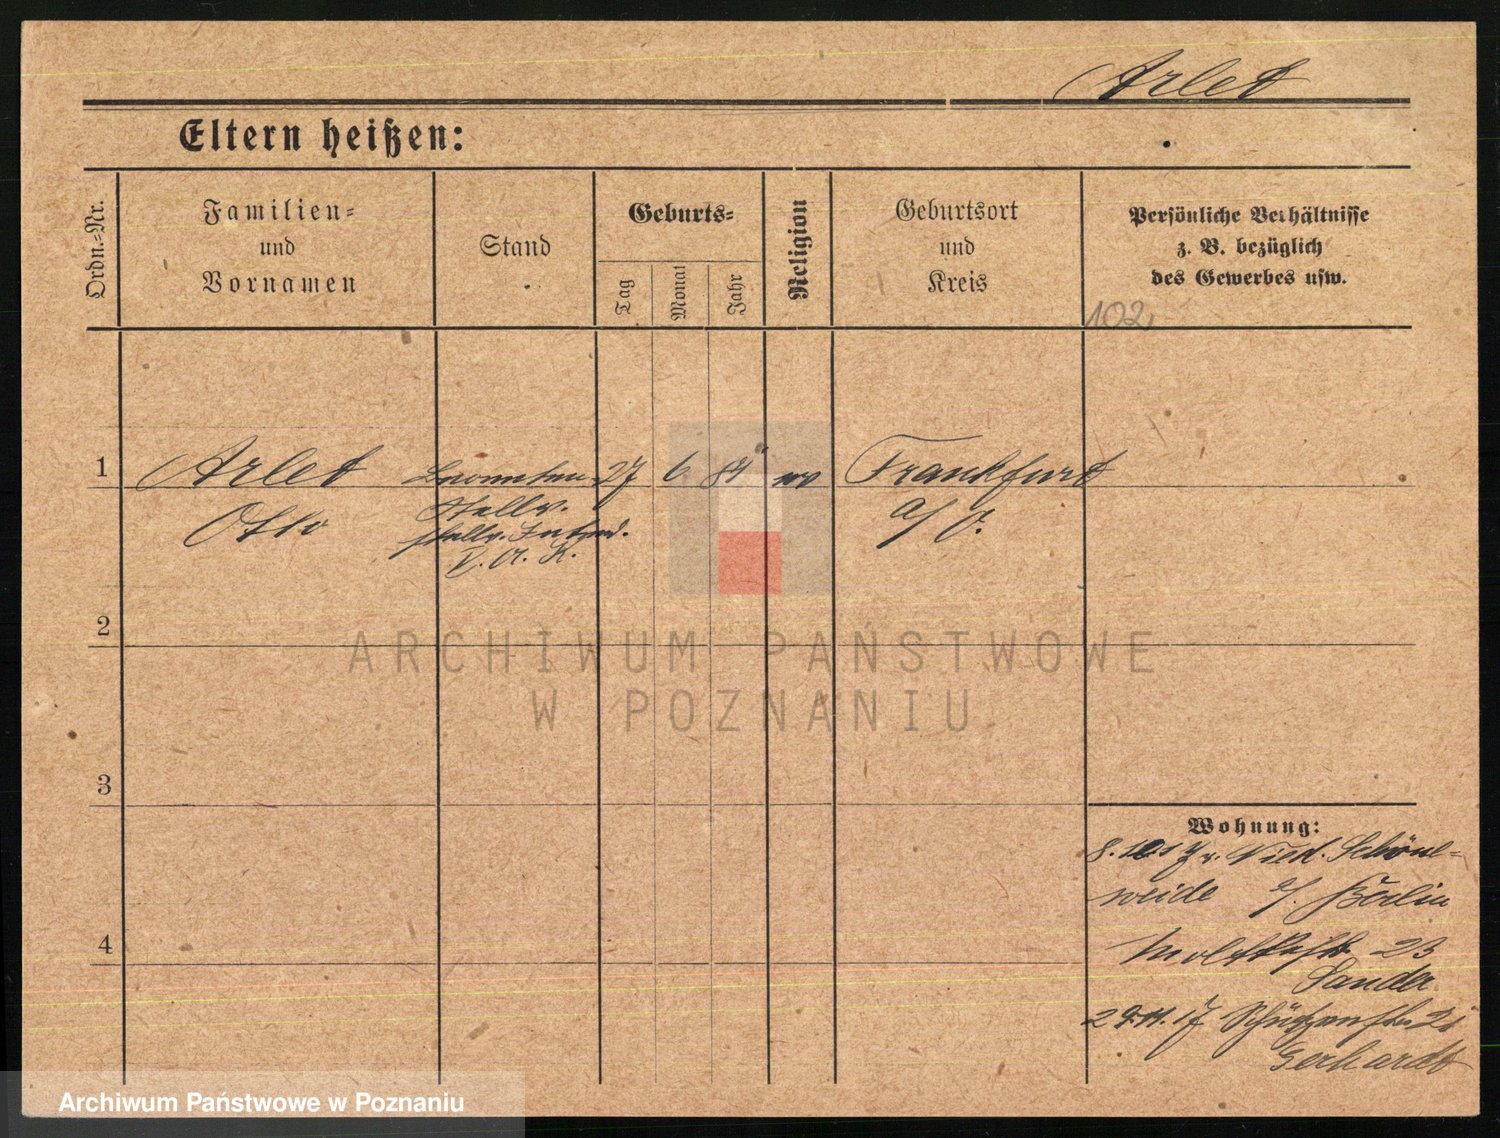 Arlet
Eltern heißen:
Ordn.-Nr.
Familien-
und
Vornamen
Stand
Geburts-
Tag
Monat
Jahr
Religion
Geburtsort
und
Kreis
Persönliche Verhältnisse
z. B. bezüglich
des Gewerbes usw.
102
1
Arlet
27
6
84
ev
Frankfurt
Otto
Stellv.
stellv. Intend.
V. A. K.
a/O.
2
3
4
Wohnung:
8.10.17 v. Nied. Schöne-
weide b/. Berlin
Moltkestr 23
Sander
29.11.17 Schützenstr. 21
Gerhardt
ARCHIWUM PAŃSTWOWE
W POZNANIU
Archiwum Państwowe w Poznaniu